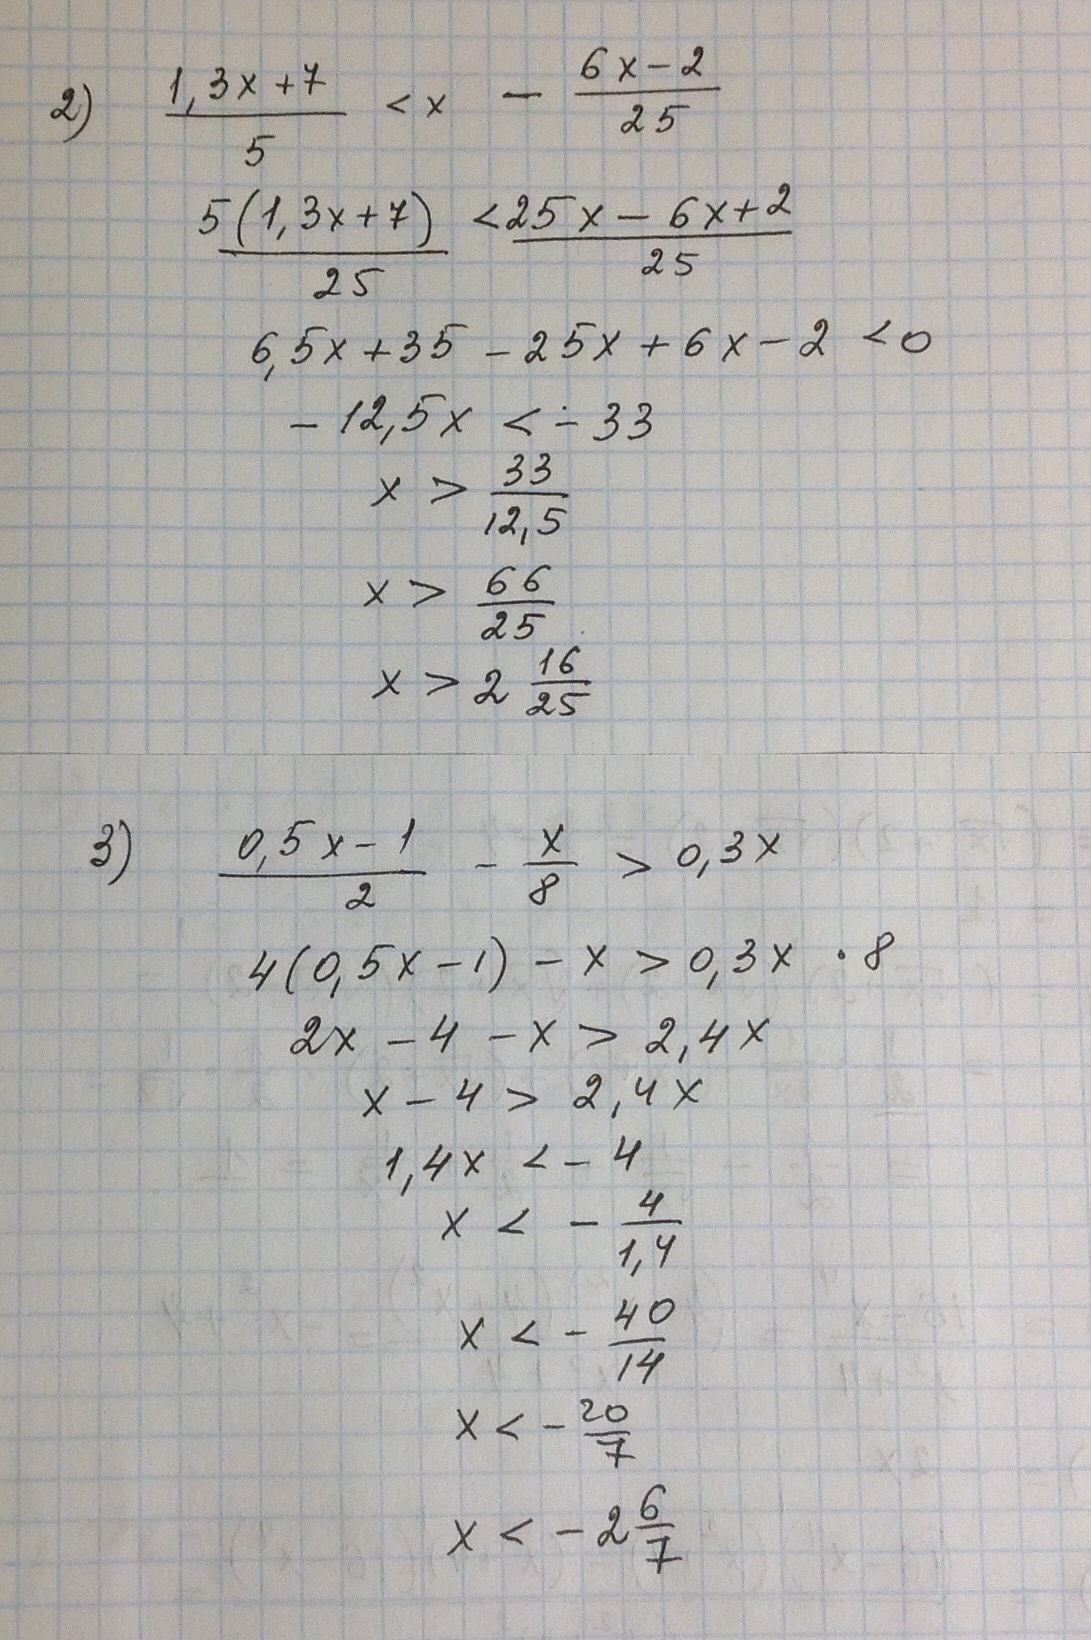 2) (1,3x+7)/5 < x - (6x-2)/25
5(1,3x+7)/25 < (25x-6x+2)/25
6,5x+35-25x+6x-2 <0
-12,5x < -33
x > 33/12,5
x > 66/25
x > 2 16/25
3) (0,5x-1)/2 - x/8 > 0,3x
4(0,5x-1)-x>0,3x · 8
2x-4-x>2,4x
x-4> 2,4x
1,4x <-4
x < - 4/1,4
x < - 40/14
x < - 20/7
x < -2 6/7